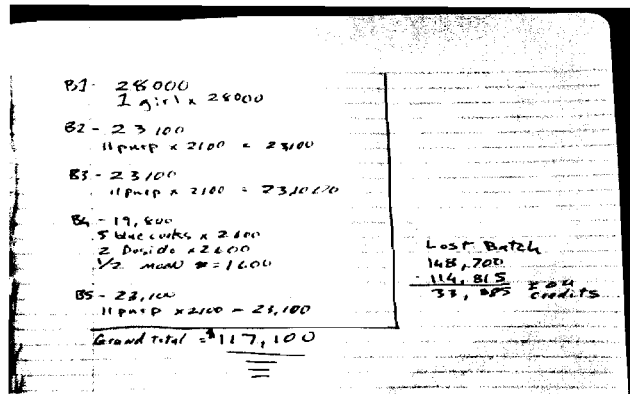 B1- 28000
1 girl x 28000
B2 - 23,100
11 purp x 2100 = 23,100
B3 - 23,100
11 purp x 2100 =
B4 - 19,800
5 blue cooks x 2600
2 Dosido x 2600
1/2 =1600
B5 - 23,100
11 purp x 2100 = 23,100
Grand total = $117,100
Lost Batch
148,700
- 114,815
33, 885 credits